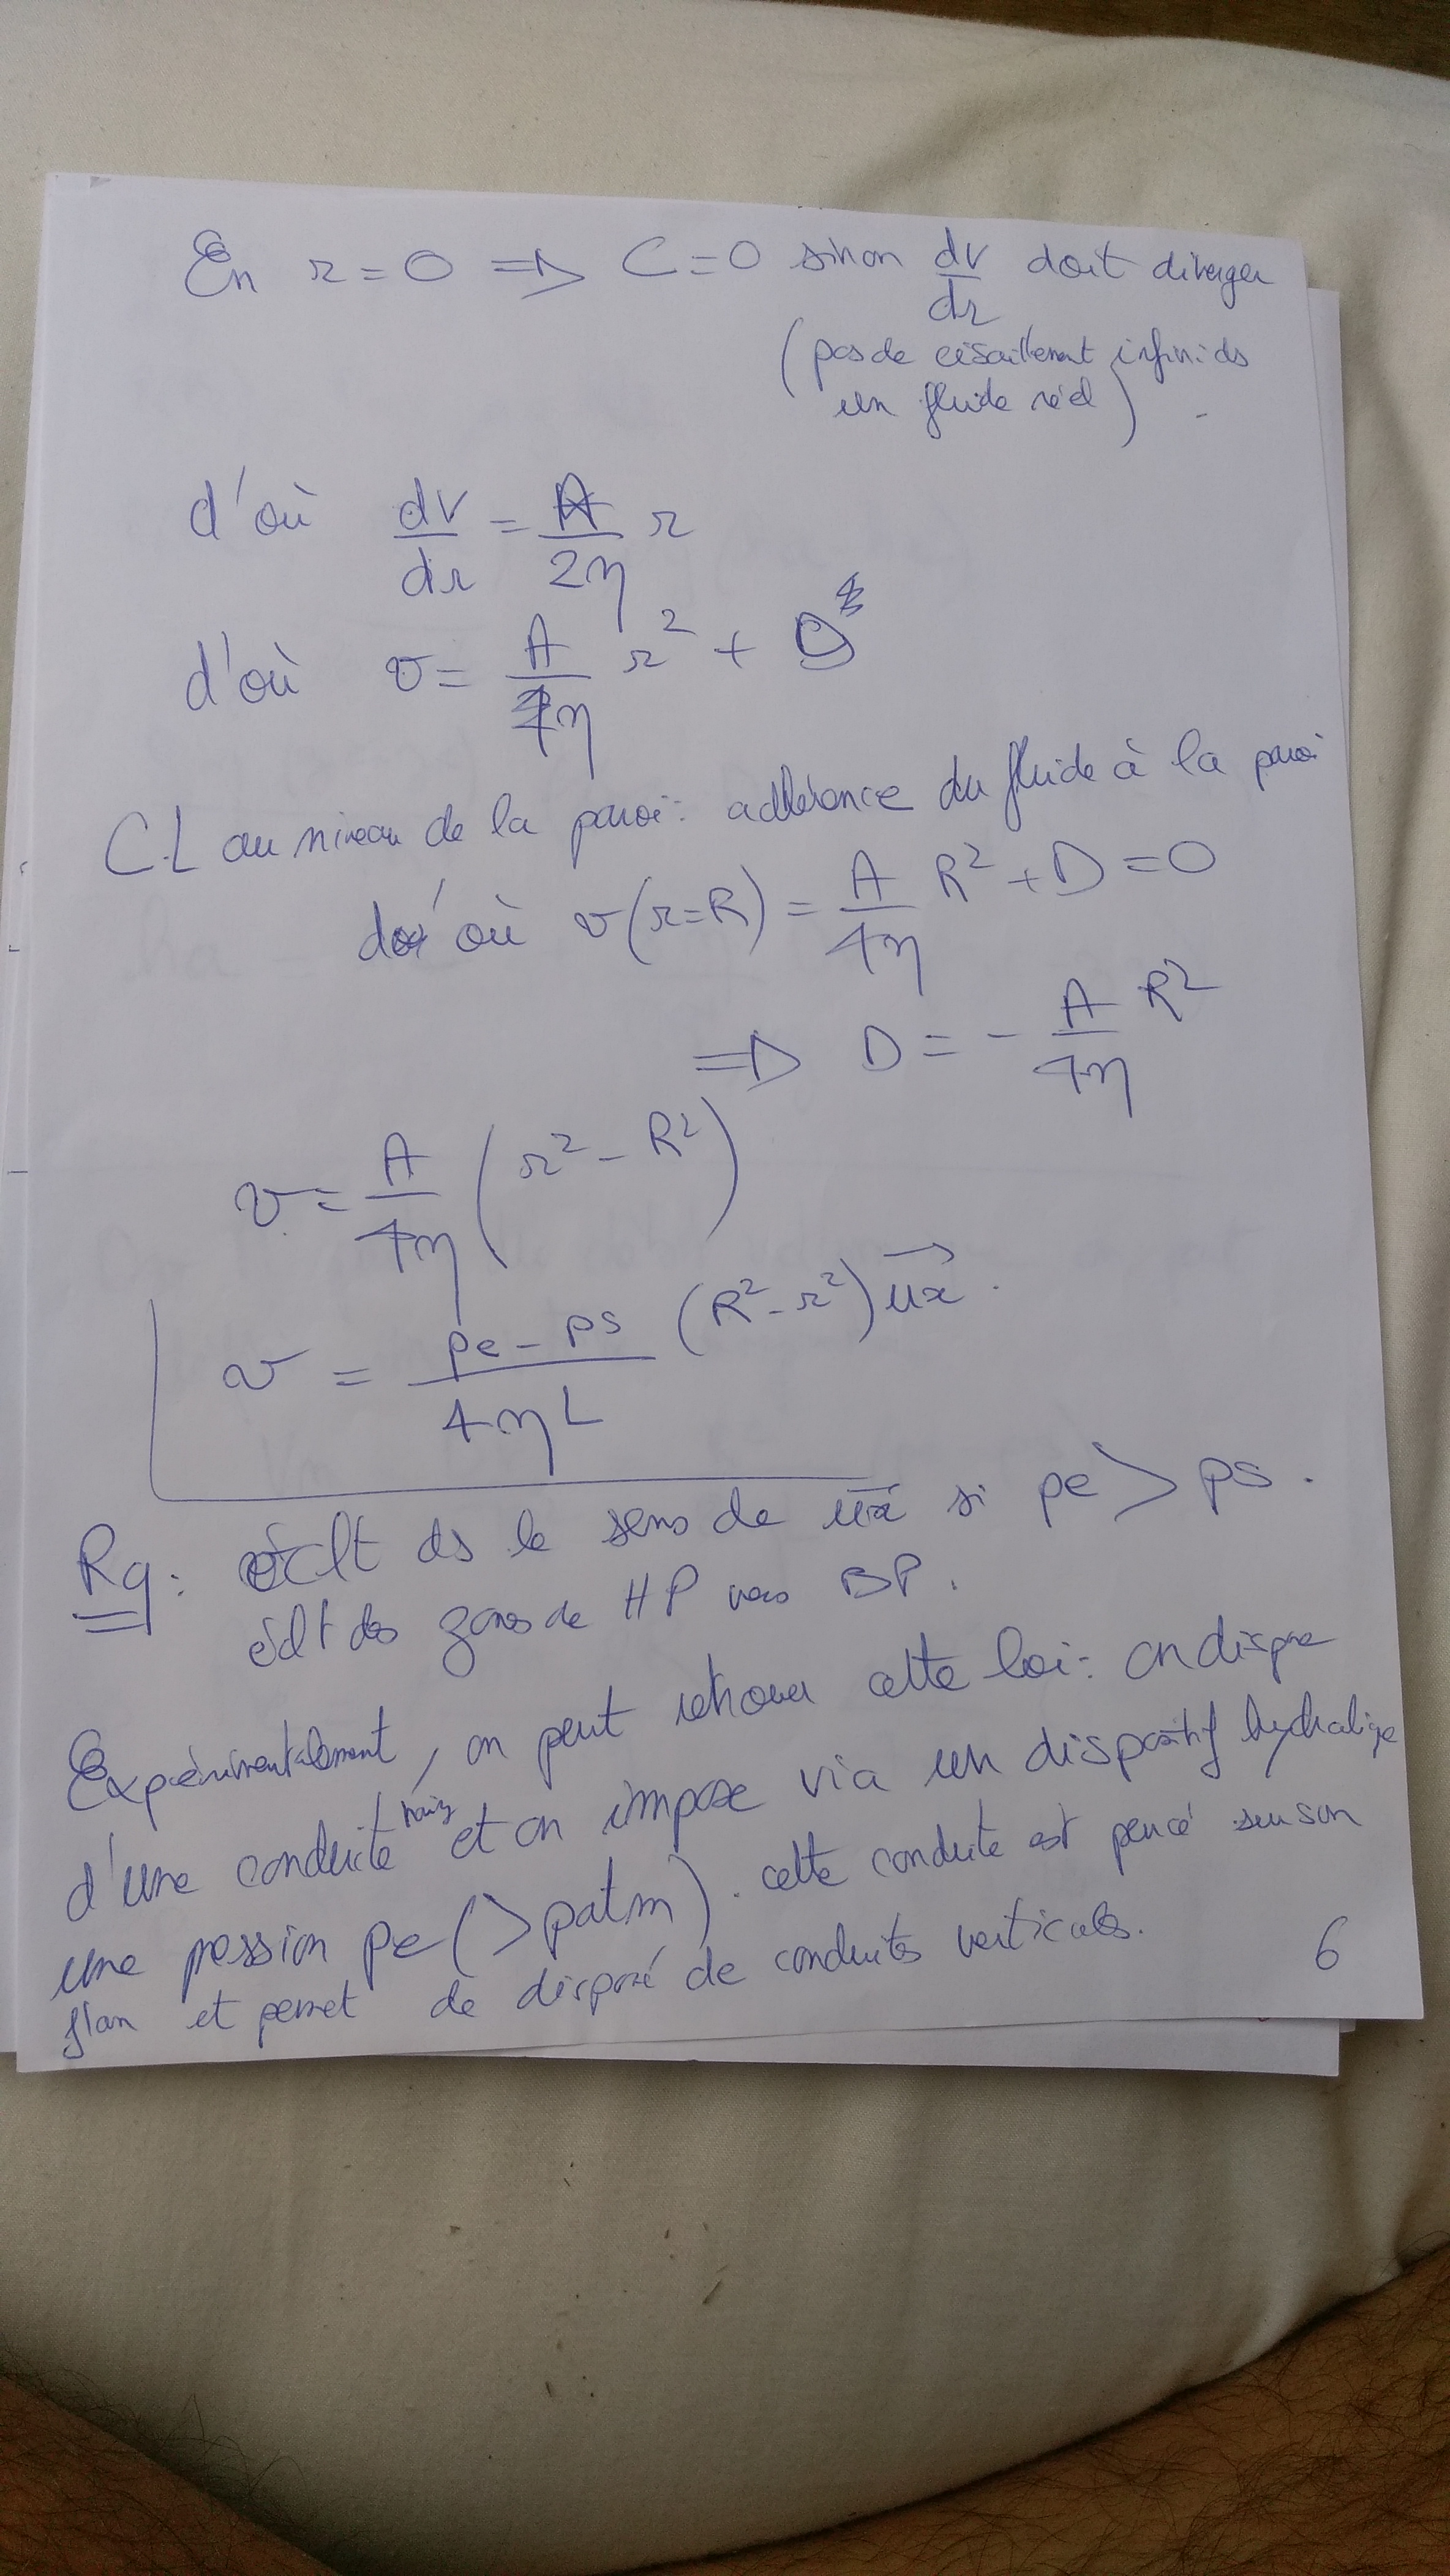 En r = 0 => C = 0 sinon dv/dr doit diverger
(pas de cisaillement infini ds
un fluide réel)
d'où dv/dr = A/2η r
d'où v = A/4η r² + D
CL au niveau de la paroi : adhérence du fluide à la paroi
d'où v(r=R) = A/4η R² + D = 0
=> D = - A/4η R²
v = A/4η (r² - R²)
v = pe - ps/4ηL (R² - r²) ux.
Rq : éclt ds le sens de ux si pe > ps.
éclt des zones de HP vers BP.
Expérimentalement, on peut retrouver cette loi : on dispose
d'une conduite et on impose via un dispositif hydraulique
une pression pe (> patm). cette conduite est percé sur son
flan et permet de disposé de conduites verticales.
6